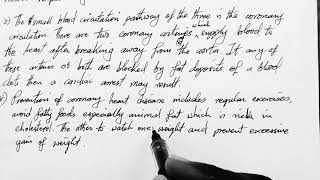 The small blood circulation pathway of the three is the coronary
circulation There are two coronary arteries which supply blood to
the heart after breaking away from the aorta. If any of
these arteries or both are blocked by fat deposits of a blood
clots then a cardiac arrest may result.
Prevention of coronary heart disease includes regular exercises,
avoid fatty foods especially animal fat which is rich in
cholesterol. The other to watch one weight and prevent excessive
gain of weight.